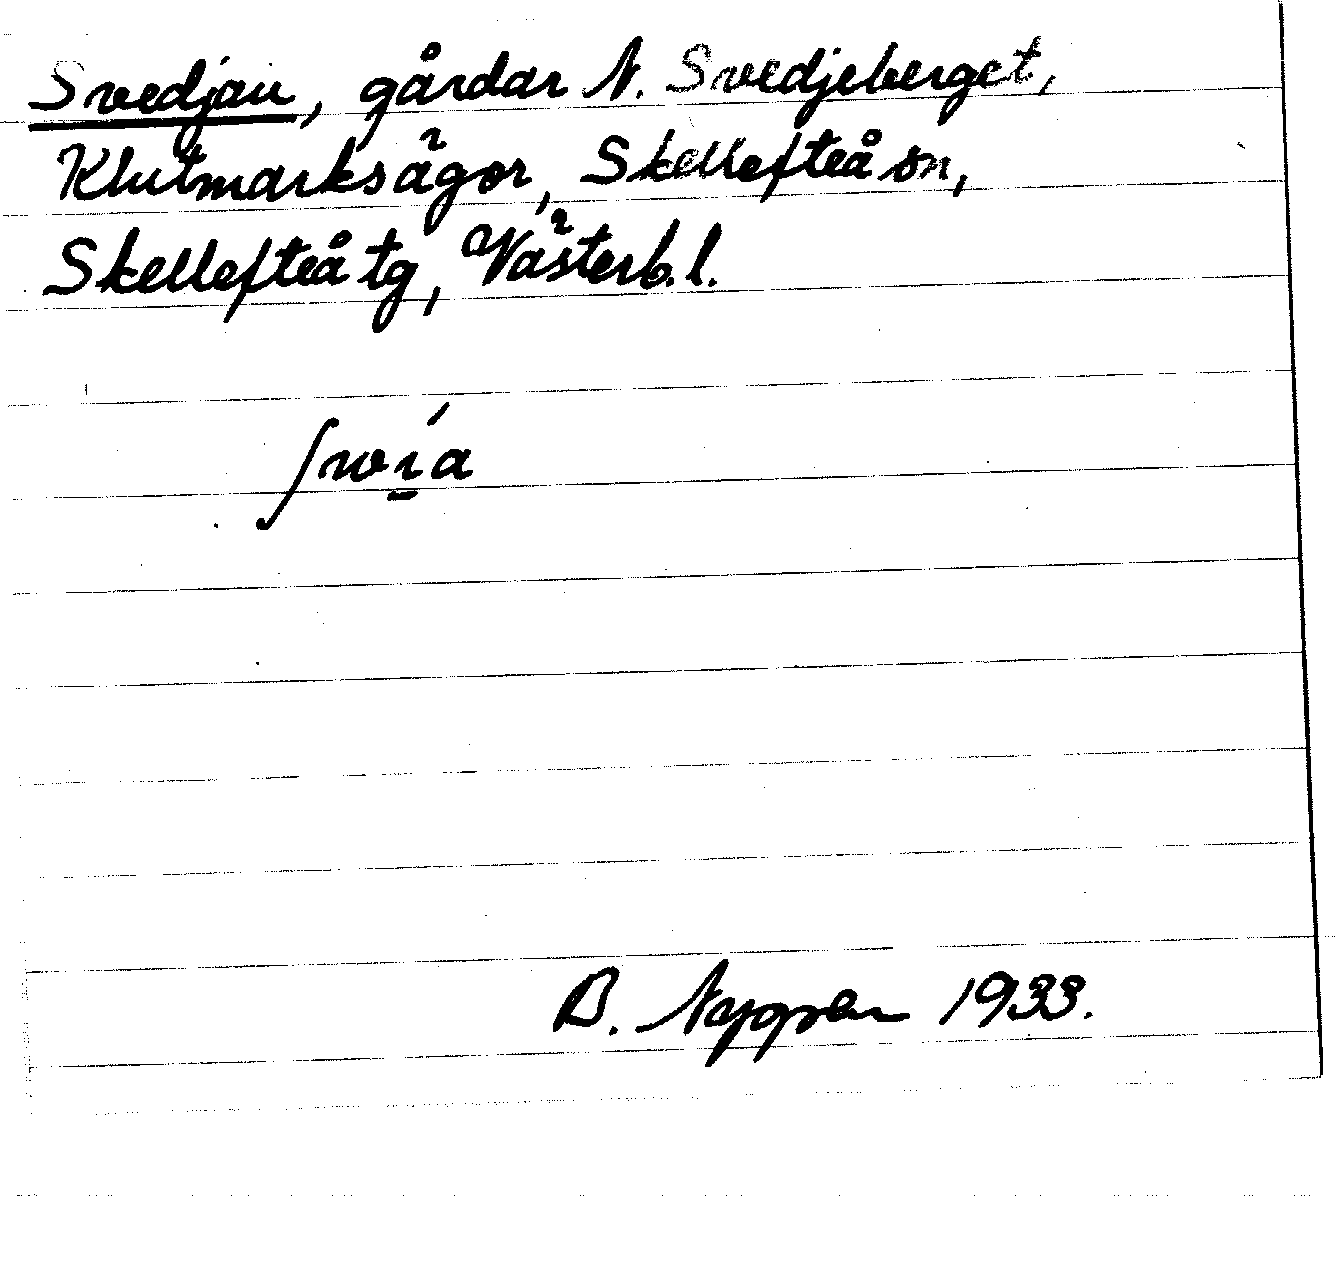 Svedjan, gårdar N. Svedjeberget,
Klutmarksägor, Skellefteå sn,
Skellefteå tg, Västerb. l.
B. Nygren 1933.